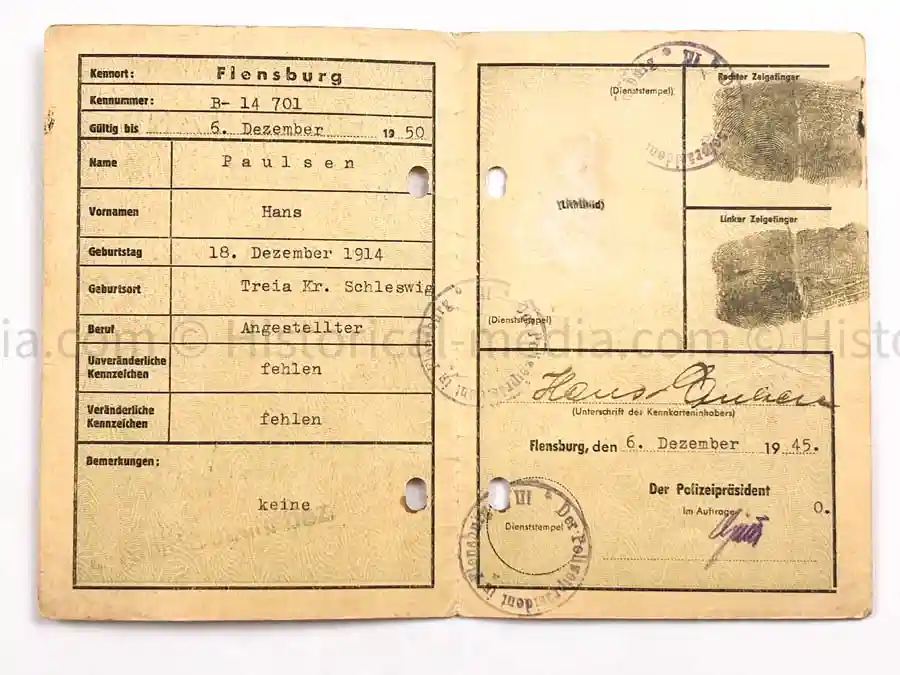 Kennort: Flensburg
Kennummer: B- 14 701
Gültig bis 6. Dezember 19 50
Name Paulsen
Vornamen Hans
Geburtstag 18. Dezember 1914
Geburtsort Treia Kr. Schleswig
Beruf Angestellter
Unveränderliche
Kennzeichen fehlen
Veränderliche
Kennzeichen fehlen
Bemerkungen:
keine
(Dienststempel)
Rechter Zeigefinger
(Lichtbild)
Linker Zeigefinger
(Dienststempel)
ia.com © Historical-media.com © Histo
Hans Paulsen
(Unterschrift des Kennkarteninhabers)
Flensburg, den 6. Dezember 19 45.
Der Polizeipräsident
Im Auftrage 0.
Dienststempel
Der Polizeipräsident in Flensburg * VI *